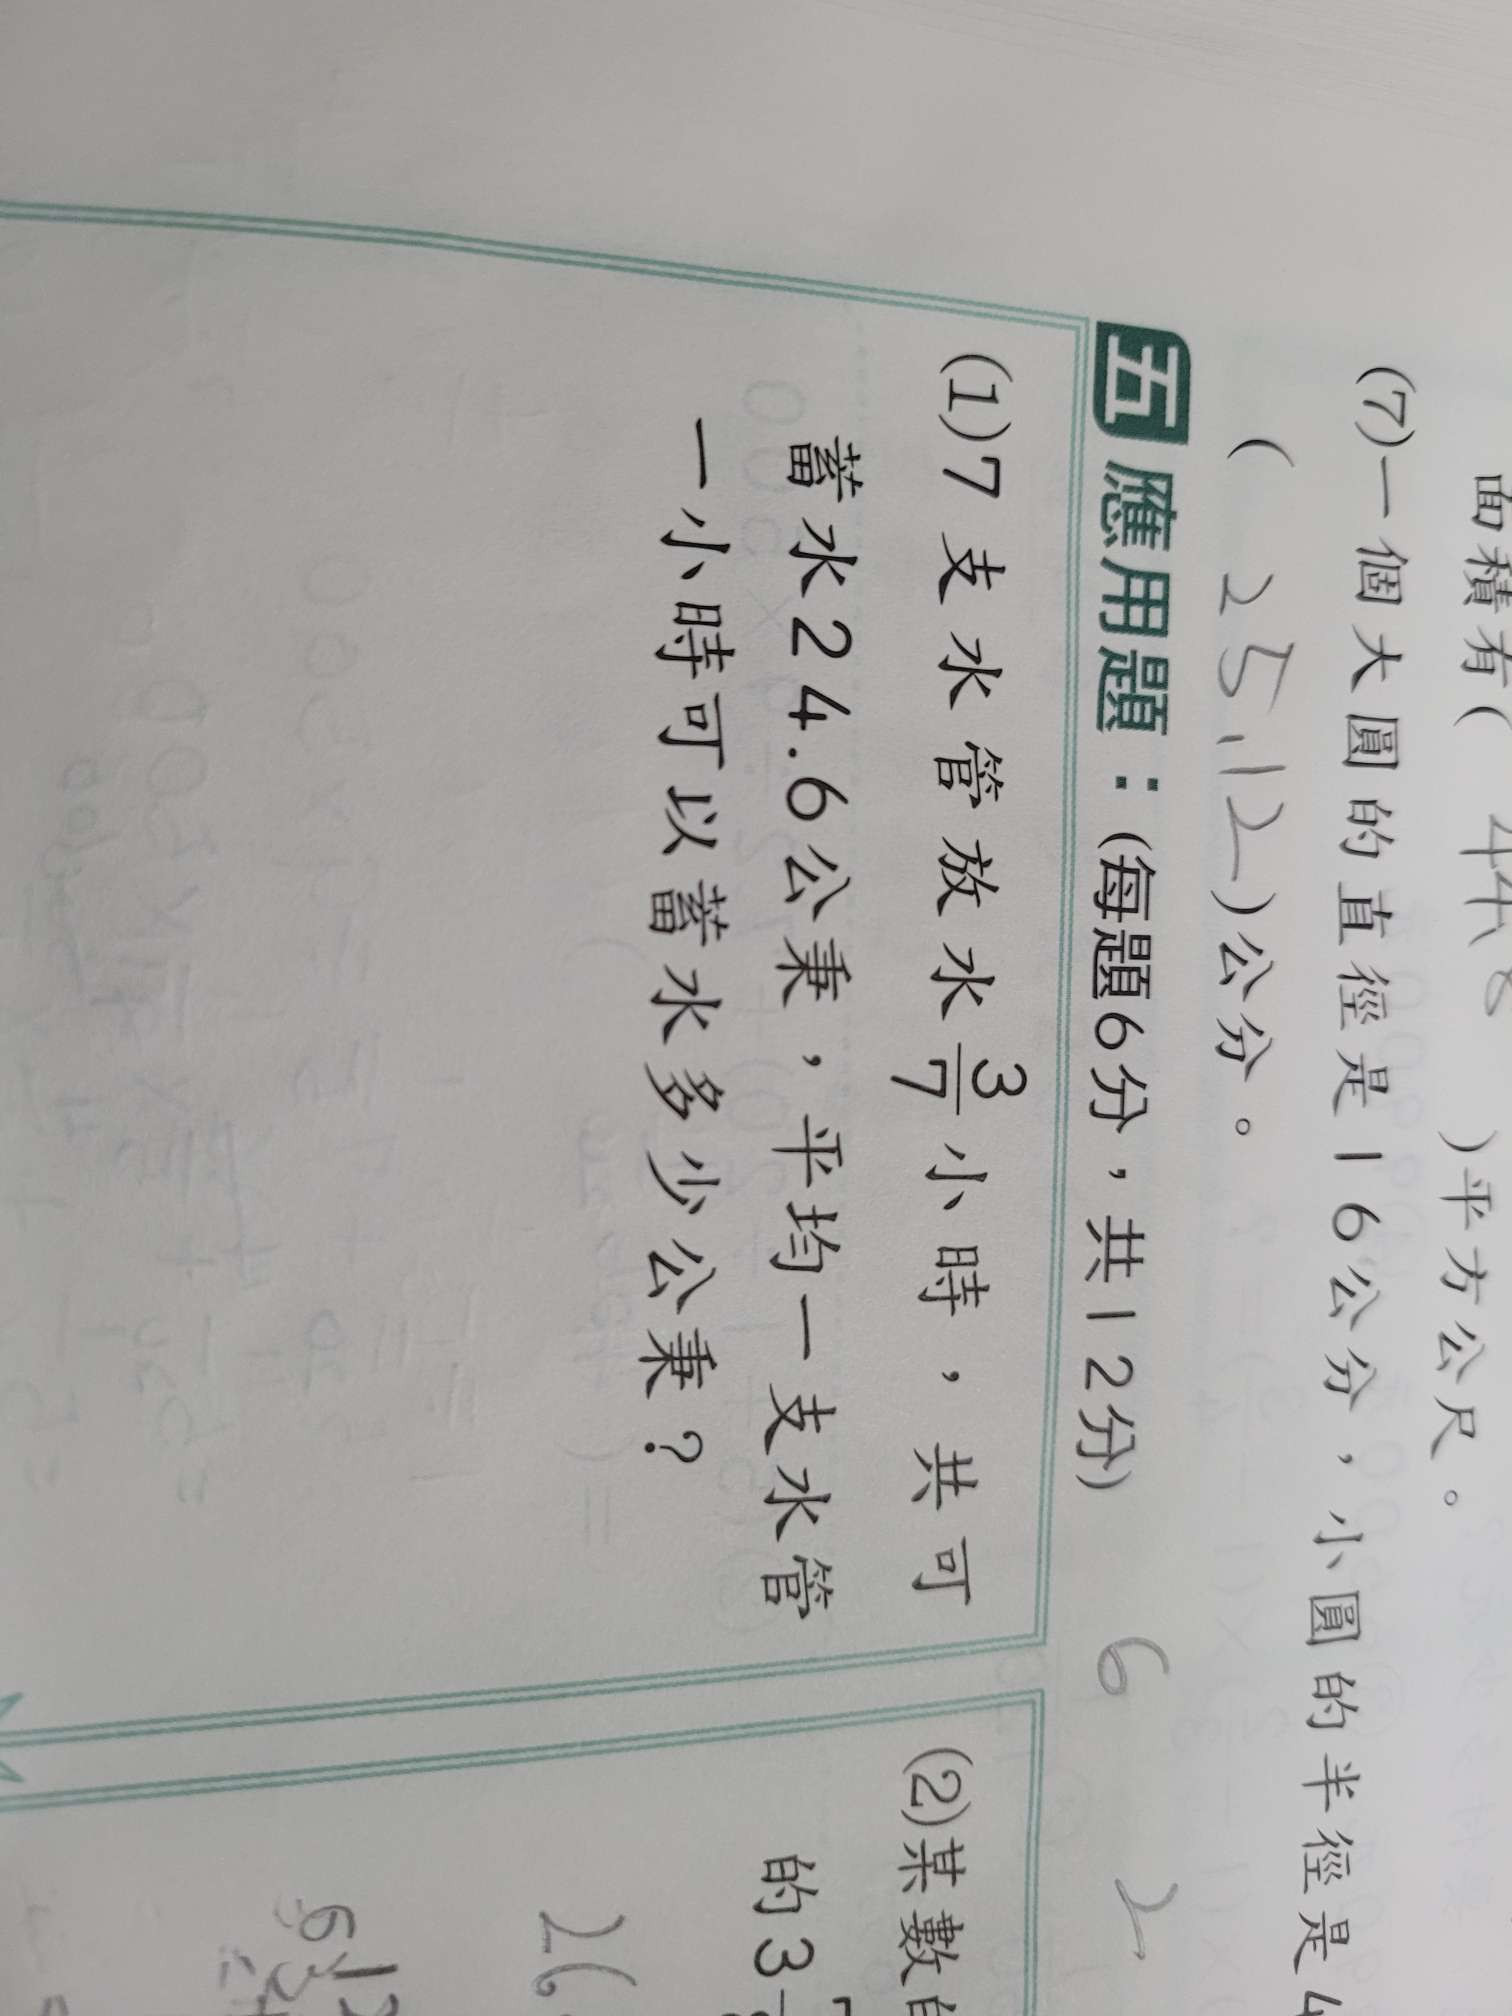 面積有( 448 )平方公尺。
(7)一個大圓的直徑是16公分，小圓的半徑是4
( 25.12 )公分。
五 應用題：(每題6分，共12分)
6 2
(1)7支水管放水3/7小時，共可
蓄水24.6公秉，平均一支水管
一小時可以蓄水多少公秉？
(2)某數的
的3